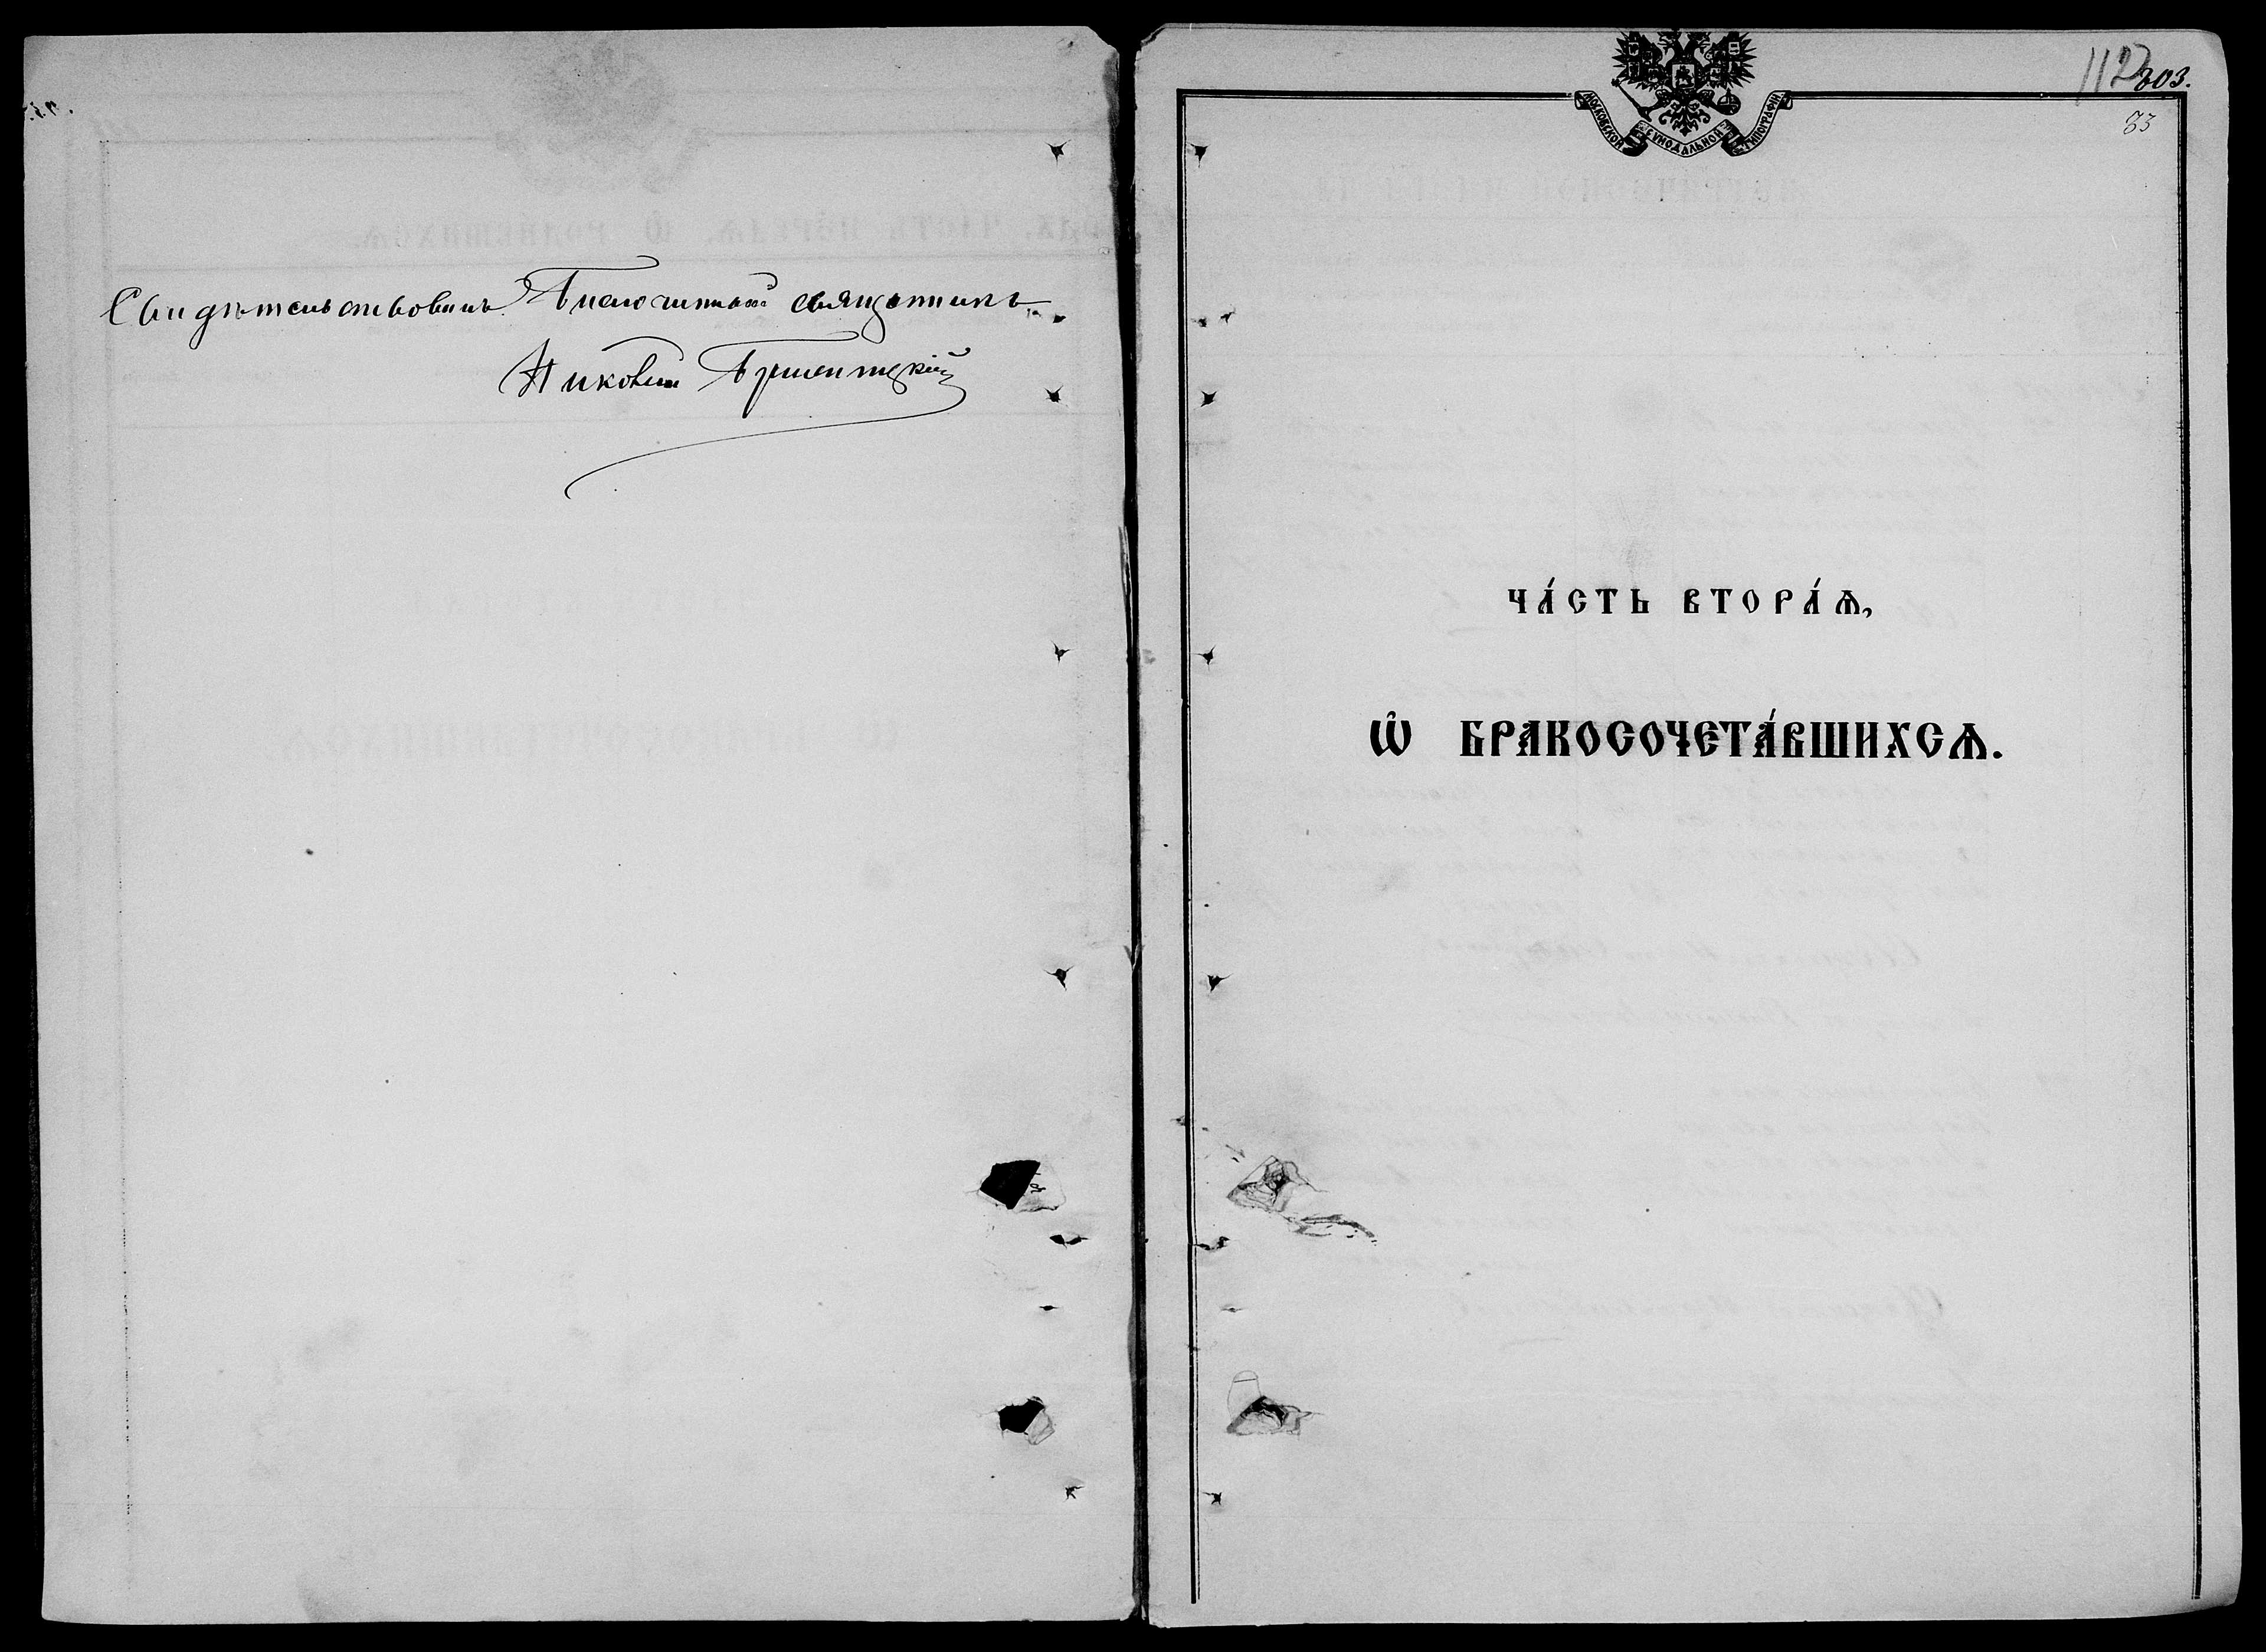 Свидѣтельствовалъ Благочинный священникъ
Николай
112
303.
33
МОСКОВСКОЙ СУНОДАЛЬНОЙ ТИПОГРАФІИ
ЧА́СТЬ ВТОРА́Ѧ,
Ѡ҆ БРАКОСОЧЕТА́ВШИХСѦ.